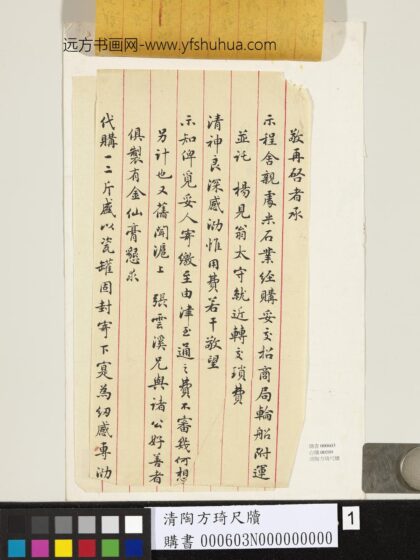 远方书画网-www.yfshuhua.com
敬再啓者承
示程舍親處米石業經購妥交招商局輪船附運
並託楊見翁太守就近轉交瑣費
清神良深感泐惟用費若干敬望
示知俾覓妥人寄繳至由津至通之費不審幾何想
另計也又舊聞滬上張雲溪兄與諸公好善者
俱製有金仙膏懇求
代購一二斤盛以瓷罐固封寄下寔為紉感專泐
購書 000603
清陶方琦尺牘
清陶方琦尺牘
購書 000603N000000000
1